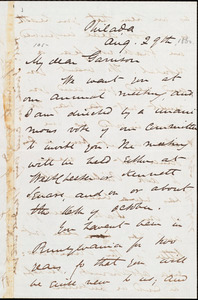 Philada
Aug. 29th
My dear Garrison
We want you at
our annual meeting and
I am directed by a unani
mous vote of our Committee
to invite you. The meeting
will be held either at
West Chester or Kennett
Square, and on or about
the of October.
You havent been in
Pennsylvania for two
years. So that you will
be new to us, and